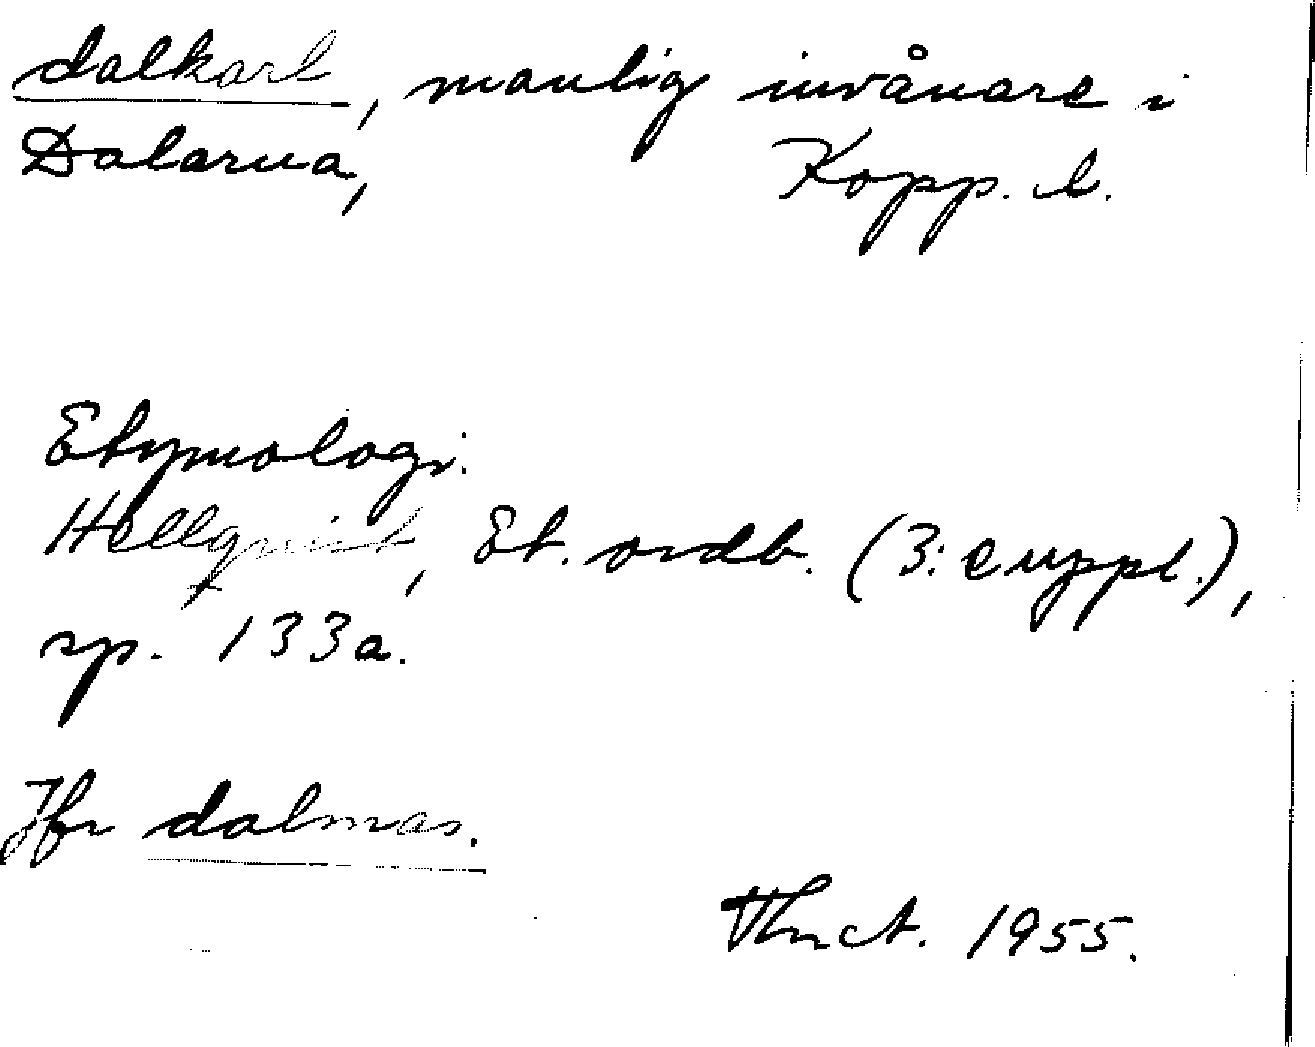 dalkarl, manlig invånare i
Dalarna, Kopp. l.
Etymologi.
Hellquist, Et. ordb. (3:e uppl.),
sp. 133a.
Jfr dalmas.
1955.